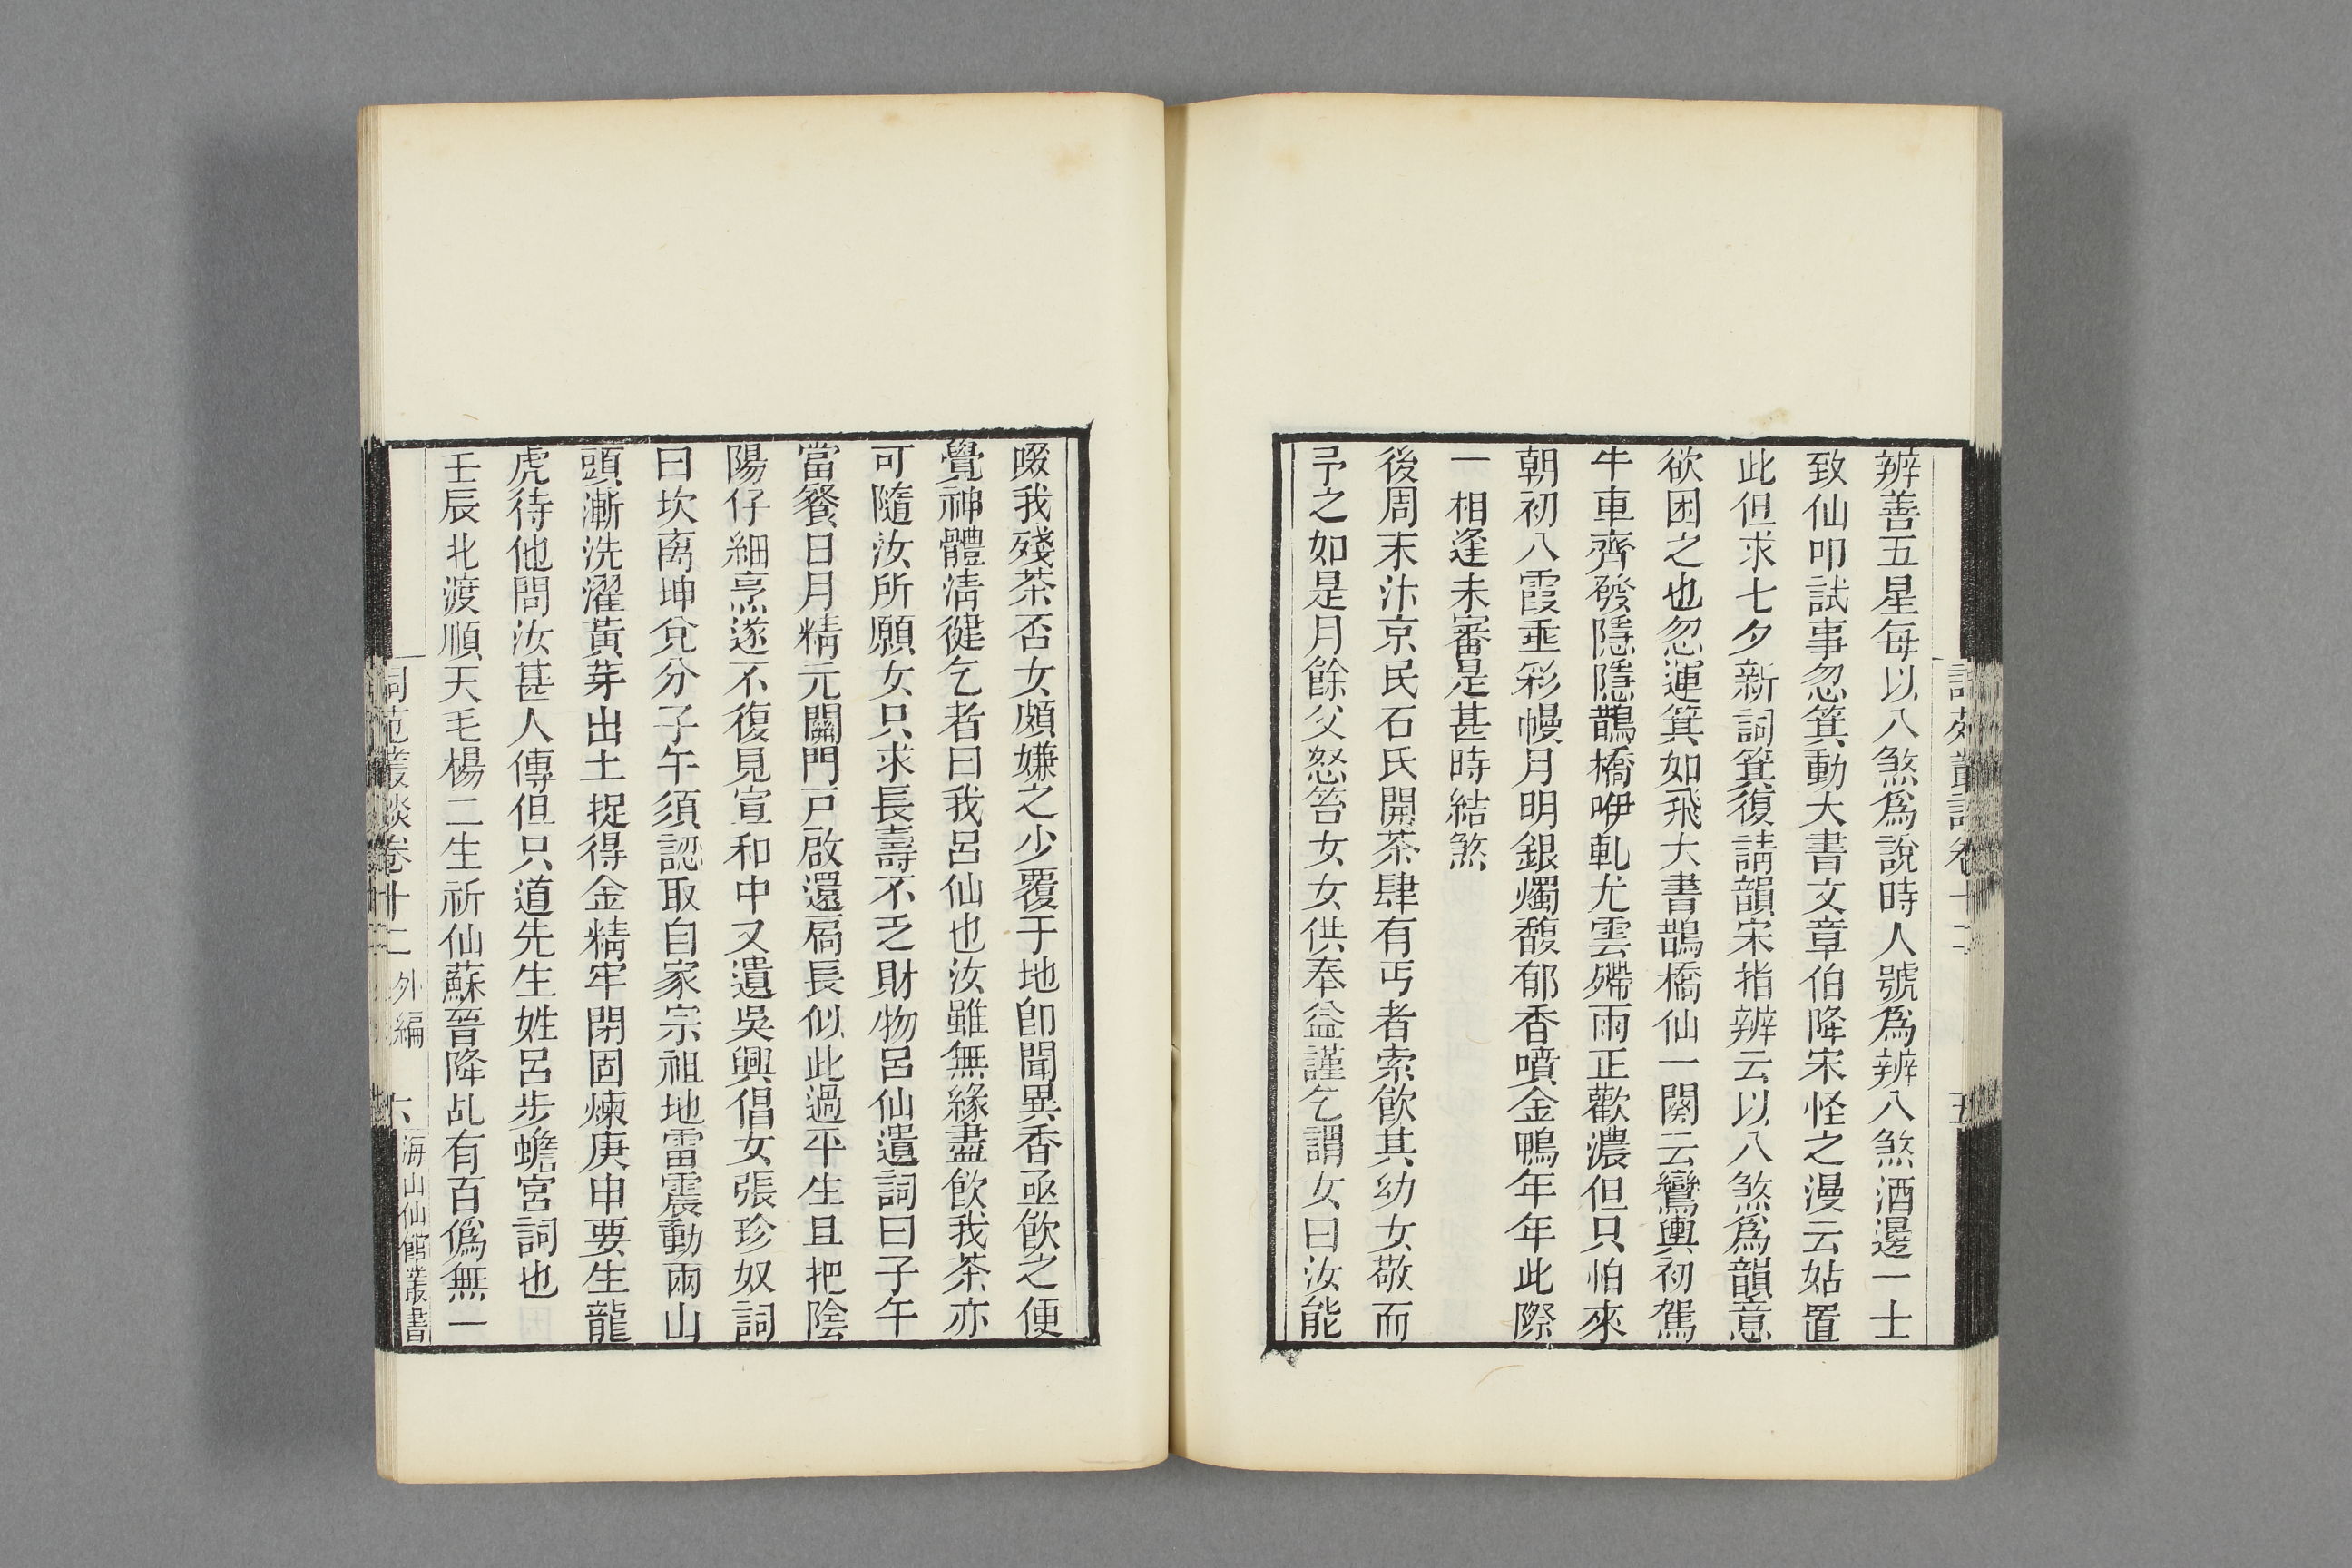 辨善五星每以八煞爲說時人號爲辨八煞酒邊一士
致仙叩試事忽箕動大書文章伯降宋怪之漫云姑置
此但求七夕新詞箕復請韻宋指辨云以八煞爲韻意
欲困之也忽運箕如飛大書鵲橋仙一闋云鸞輿初駕
牛車齊發隱隱鵲橋咿軋尤雲殢雨正歡濃但只怕來
朝初八霞垂彩幔月明銀燭馥郁香噴金鴨年年此際
一相逢未審是甚時結煞
後周末汴京民石氏開茶肆有丐者索飲其幼女敬而
予之如是月餘父怒笞女女供奉益謹乞謂女曰汝能
啜我殘茶否女頗嫌之少覆于地卽聞異香亟飲之便
覺神體清健乞者曰我呂仙也汝雖無緣盡飲我茶亦
可隨汝所願女只求長壽不乏財物呂仙遺詞曰子午
當餐日月精元關門戸啟還扃長似此過平生且把陰
陽仔細烹遂不復見宣和中又遺吳興倡女張珍奴詞
曰坎离坤兌分子午須認取自家宗祖地雷震動雨山
頭漸洗濯黃芽出土捉得金精牢閉固煉庚申要生龍
虎待他問汝甚人傳但只道先生姓呂步蟾宮詞也
壬辰北渡順天毛楊二生祈仙蘇晉降乩有百僞無一
詞苑叢談卷十二 外編 六 海山仙館叢書